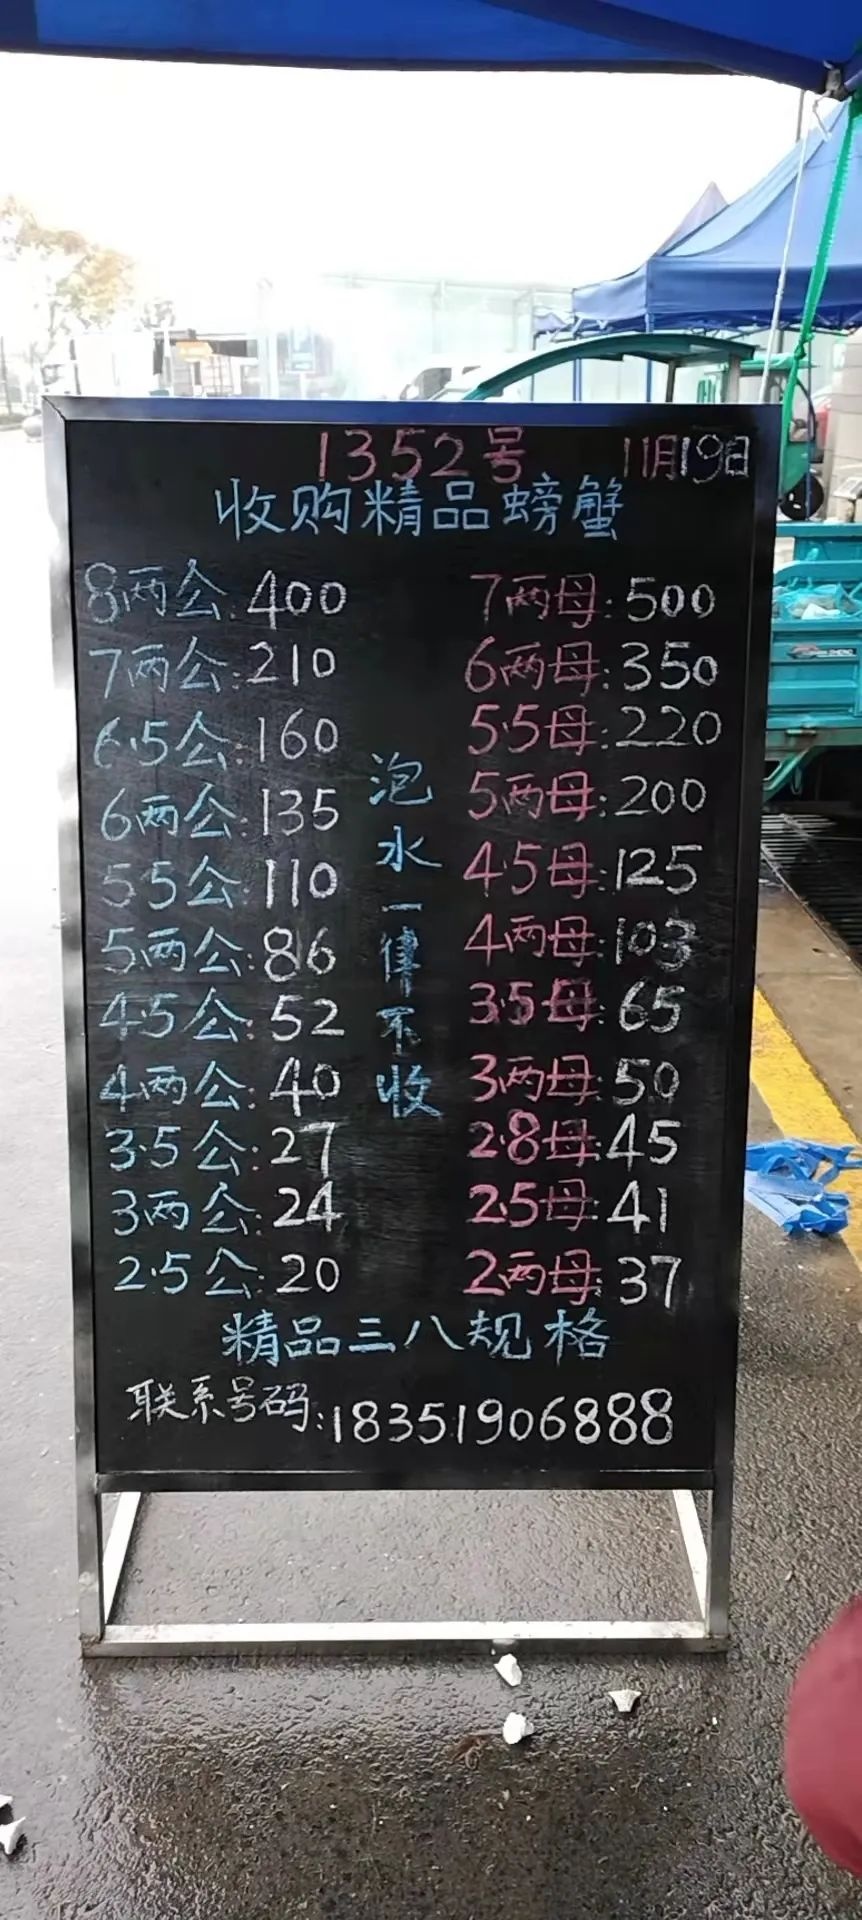 1352号 11月19日
收购精品螃蟹
8两公:400 7两母:500
7两公:210 6两母:350
6.5公:160 5.5母:220
6两公:135 5两母:200
5.5公:110 4.5母:125
5两公:86 4两母:103
4.5公:52 3.5母:65
4两公:40 3两母:50
3.5公:27 2.8母:45
3两公:24 2.5母:41
2.5公:20 2两母:37
泡水一律不收
精品三八规格
联系号码:18351906888